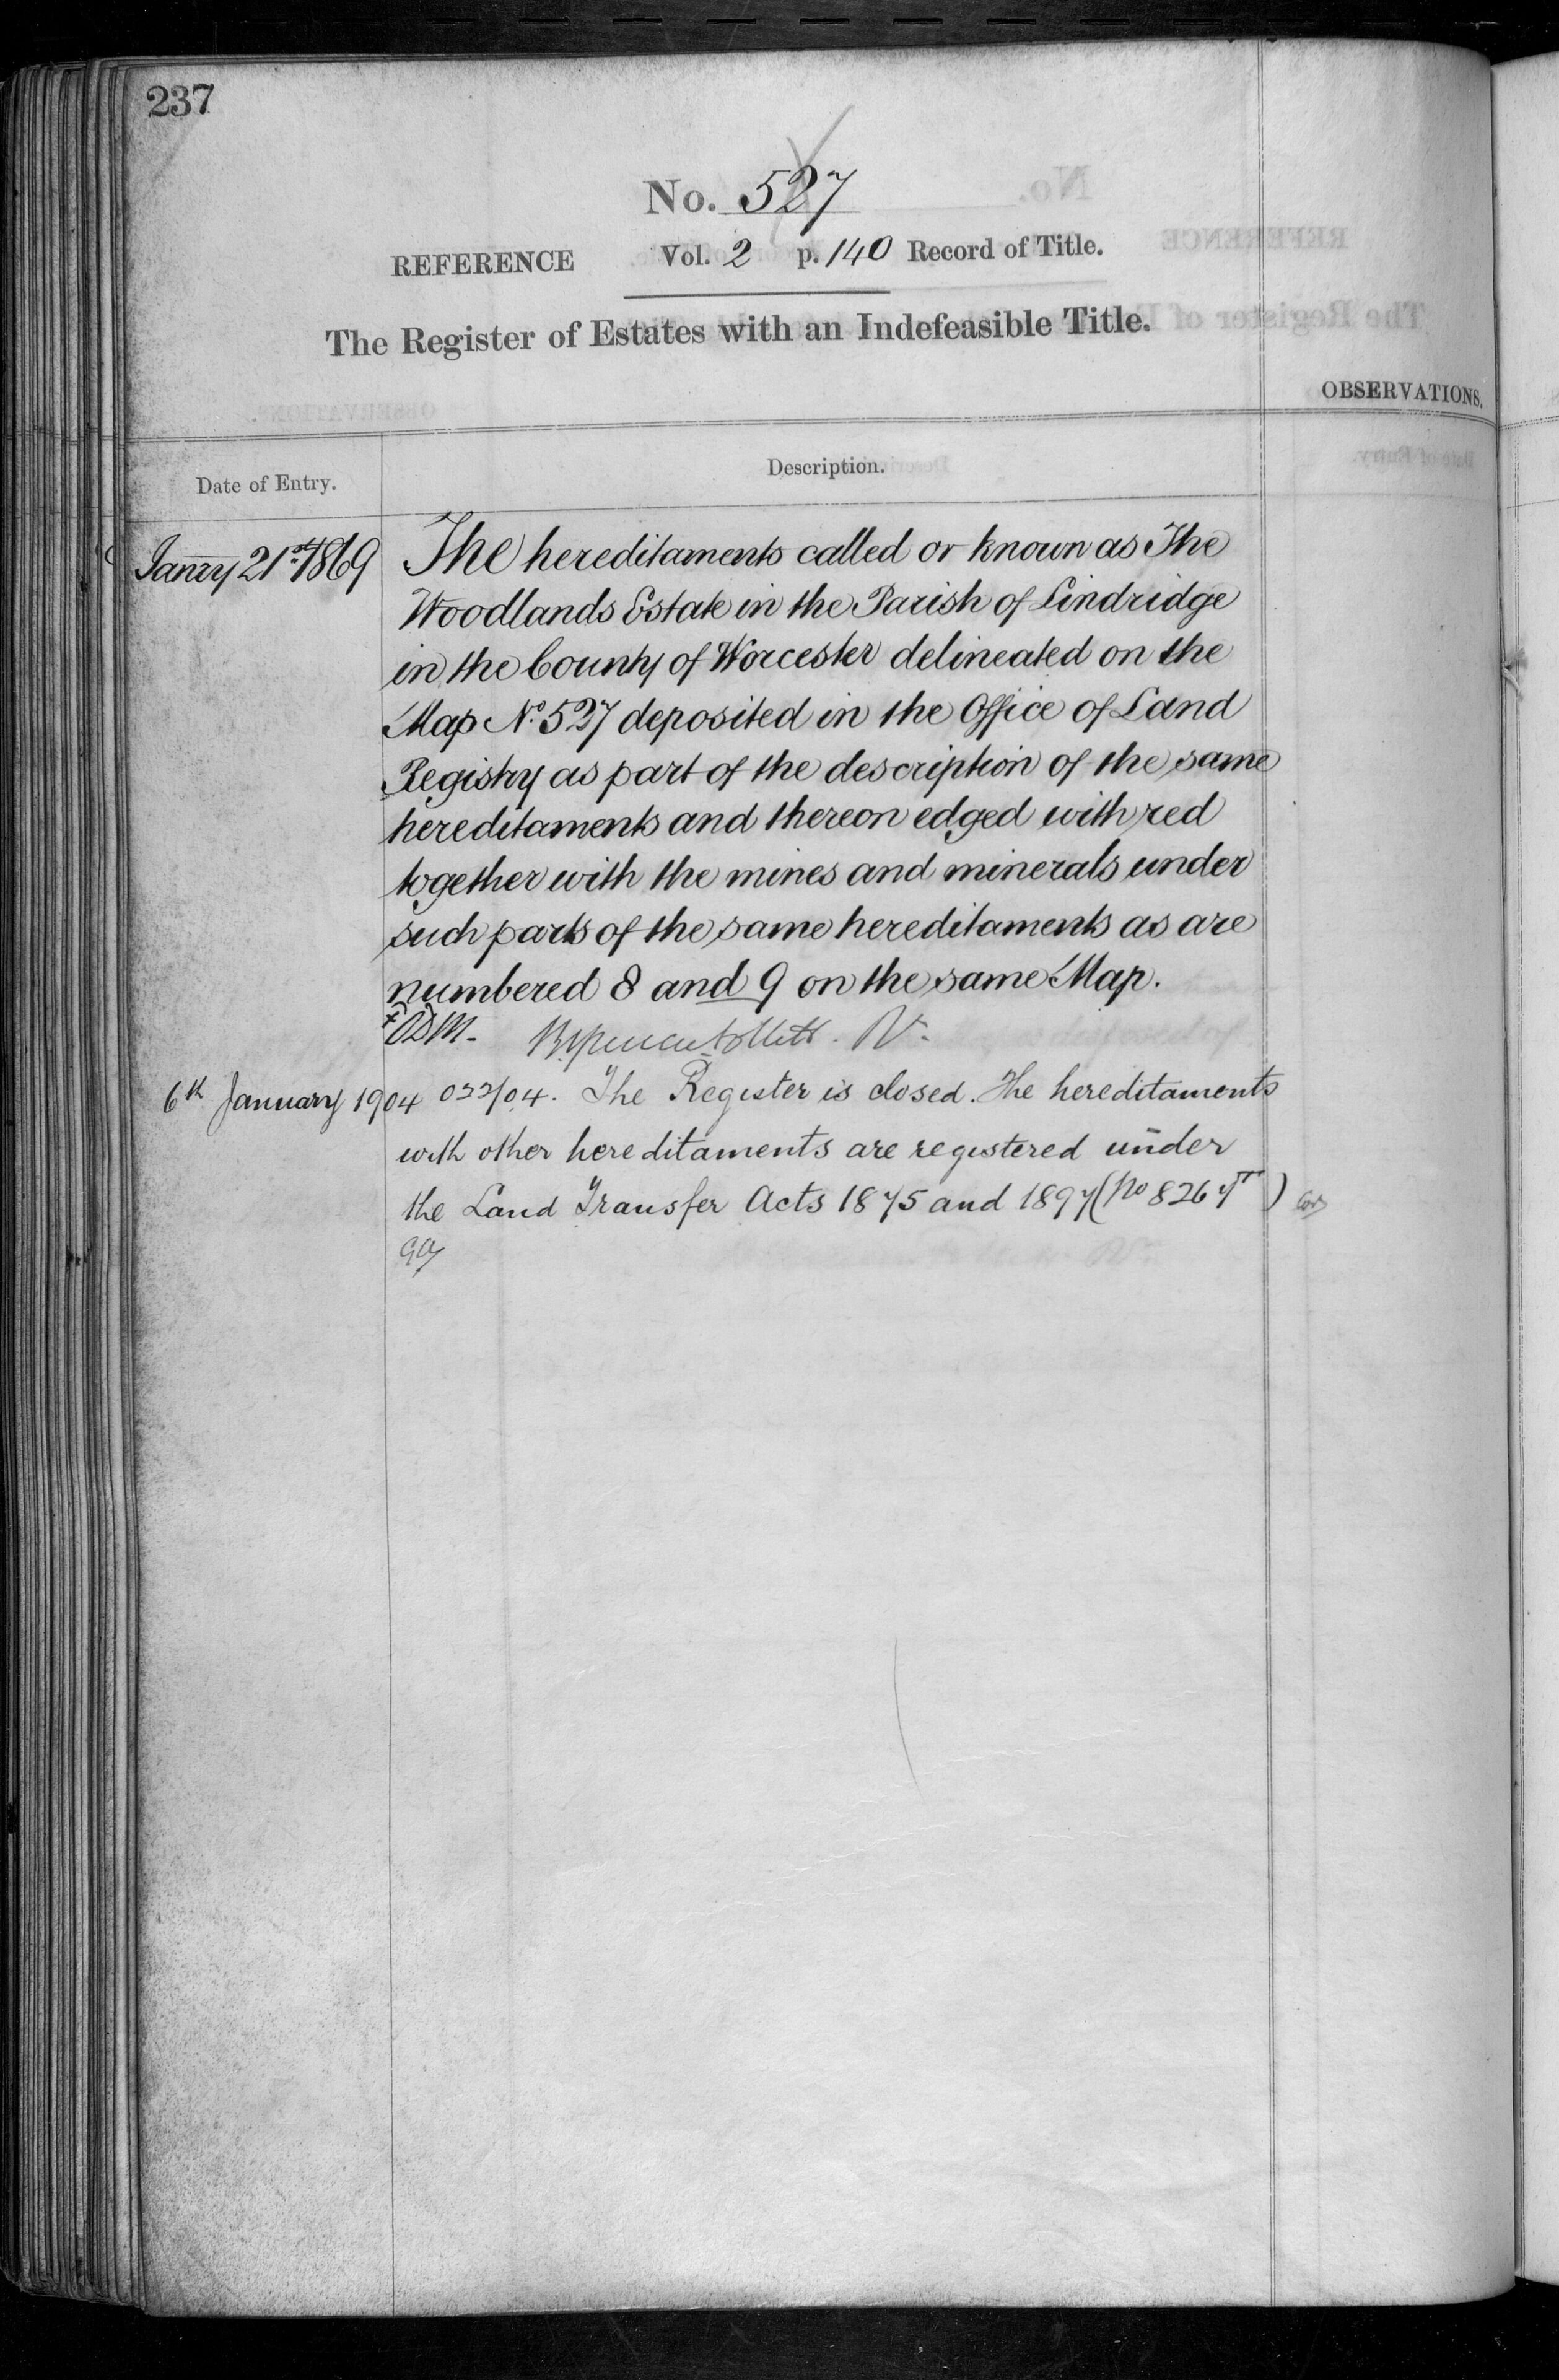 237
No. 527
REFERENCE Vol. 2 p. 140 Record of Title.
The Register of Estates with an Indefeasible Title.
OBSERVATIONS.
Date of Entry.
Description.
Janry 21st 1869 The hereditaments called or known as The
Woodlands Estate in the Parish of Lindridge
in the County of Worcester delineated on the
Map No 527 deposited in the Office of Land
Registry as part of the description of the same
hereditaments and thereon edged with red
together with the mines and minerals under
such parts of the same hereditaments as are
numbered 8 and 9 on the same Map.
6th January 1904 022/04. The Register is closed. The hereditaments
with other hereditaments are registered under
the Land Transfer Acts 1875 and 1897 (No 8267)